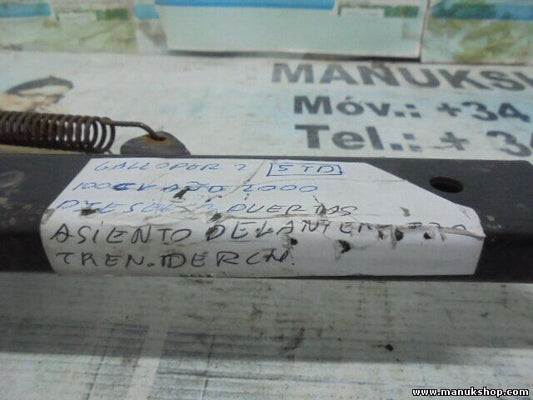 MAÑUKSH
Móv.: +34
Tel.: +34
GALLOPER 2 5TD
100CV AÑO 2000
DIESEL 5 PUERTAS
ASIENTO DELANTERO
TREN. DERCH.
www.manukshop.com